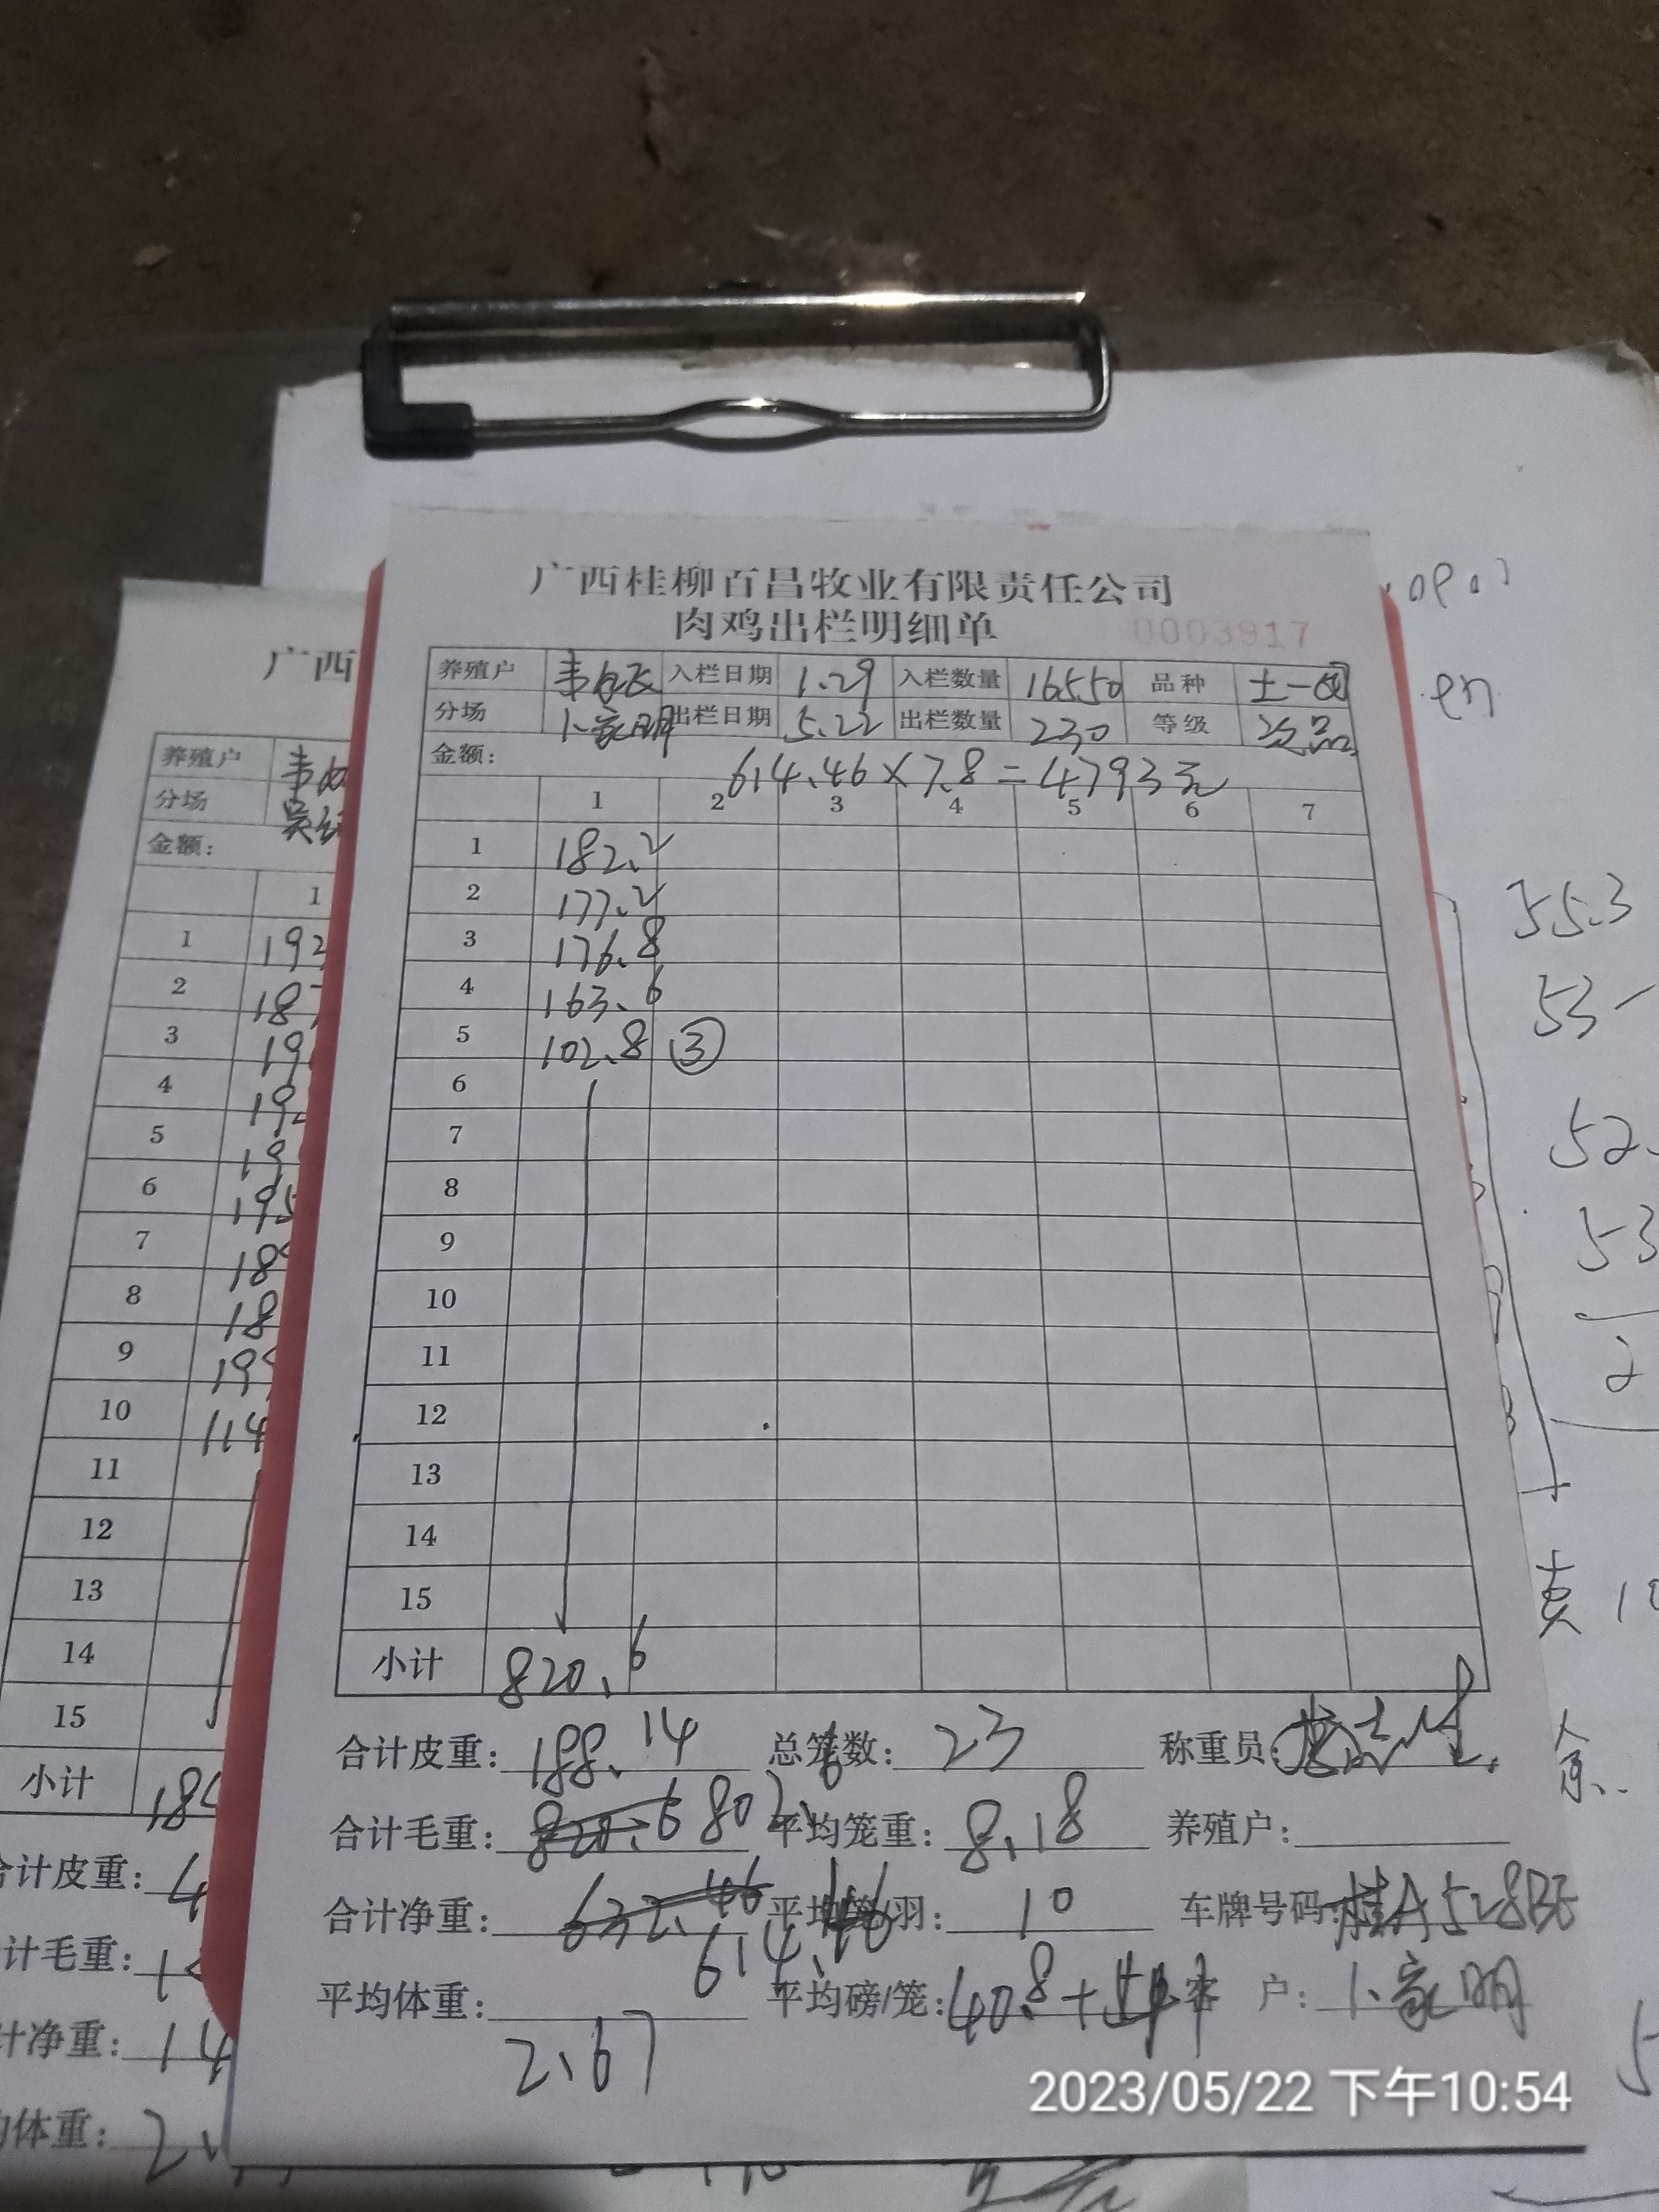 广西桂柳百昌牧业有限责任公司
肉鸡出栏明细单
0003917
养殖户 入栏日期 1.29 入栏数量 16550 品种 土一
分场 卜家明 出栏日期 5.22 出栏数量 230 等级 次品
金额: 614.46×7.8=4793元
1 2 3 4 5 6 7
1 182.2
2 177.2
3 176.8
4 163.6
5 102.8 ③
6
7
8
9
10
11
12
13
14
15
小计 820.6
合计皮重: 188.14 总笼数: 23 称重员:
合计毛重: 820.6 802.6 平均笼重: 8.18 养殖户:
合计净重: 632.46 614.46 平均笼/羽: 10 车牌号码: 桂A528BE
平均体重: 2.67 平均磅/笼: 40.8+ 客户: 卜家明
广西
养殖户
分场
金额:
1
1 192
2 187
3 19
4 19
5 19
6 195
7 18
8 18
9 19
10 114
11
12
13
14
15
小计 18
合计皮重: 4
计毛重: 1
计净重: 14
体重: 2.
55.3
53
52.
53
2
卖 10
2023/05/22 下午10:54